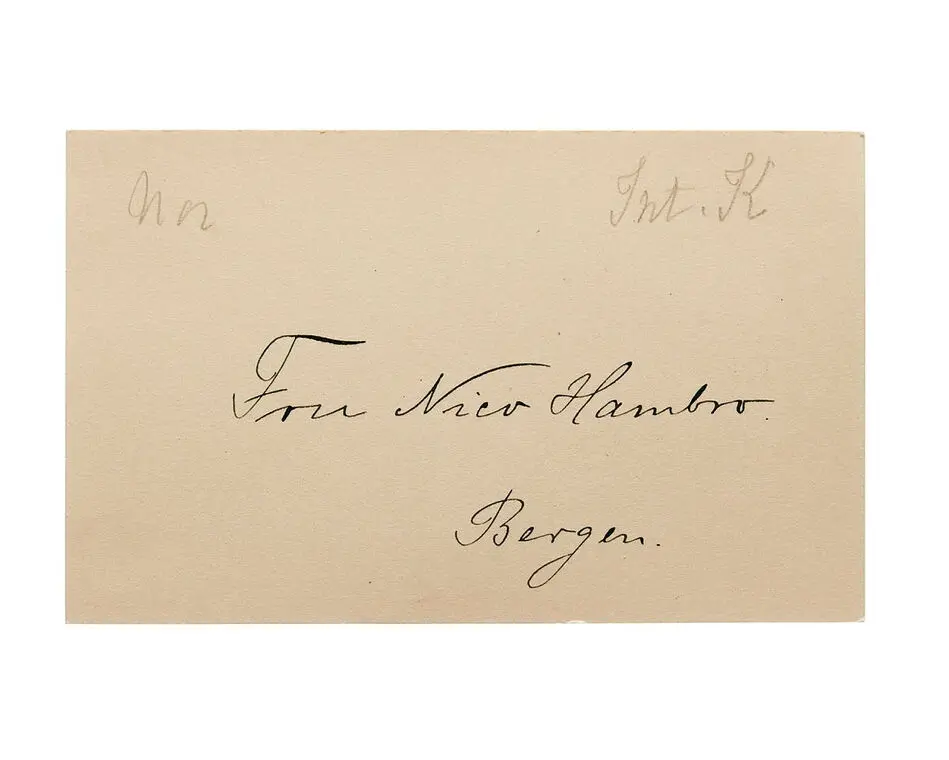 Nor
Int. K
Fru Nico Hambro.
Bergen.